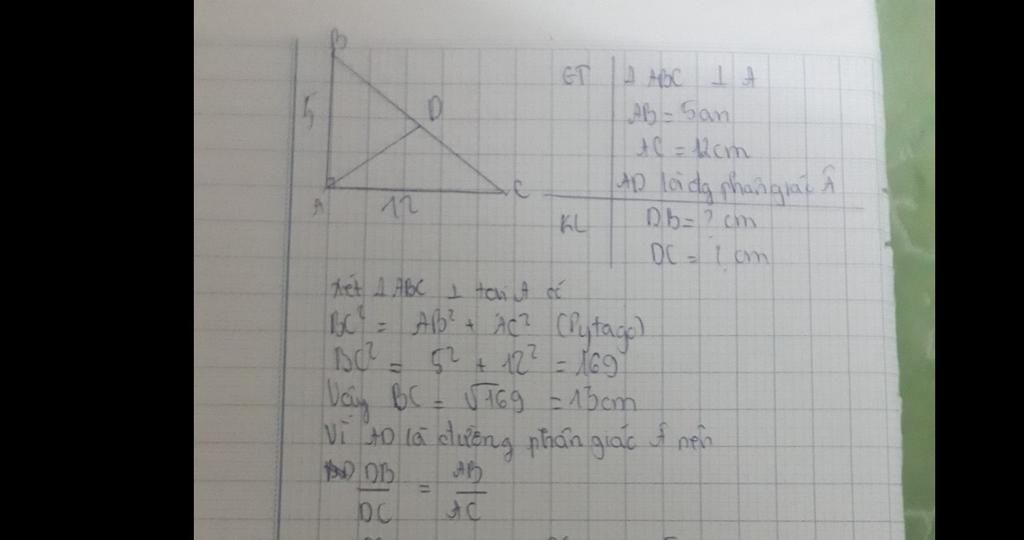 B
5
D
A
12
C
GT
⊥ ABC ⊥ A
AB = 5cm
AC = 12cm
AD là đg phân giác Â
KL
DB = ? cm
DC = ? cm
Xét ⊥ ABC ⊥ tại A có
BC² = AB² + AC² (Pytago)
BC² = 5² + 12² = 169
Vậy BC = √169 = 13cm
Vì AD là đường phân giác Â nên
DB/DC = AB/AC